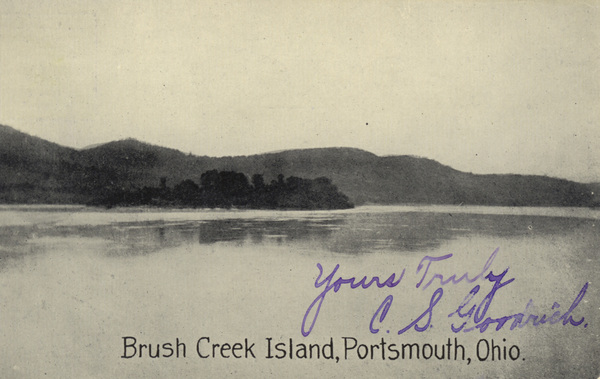 Yours Truly
C. S. Goodrich.
Brush Creek Island, Portsmouth, Ohio.